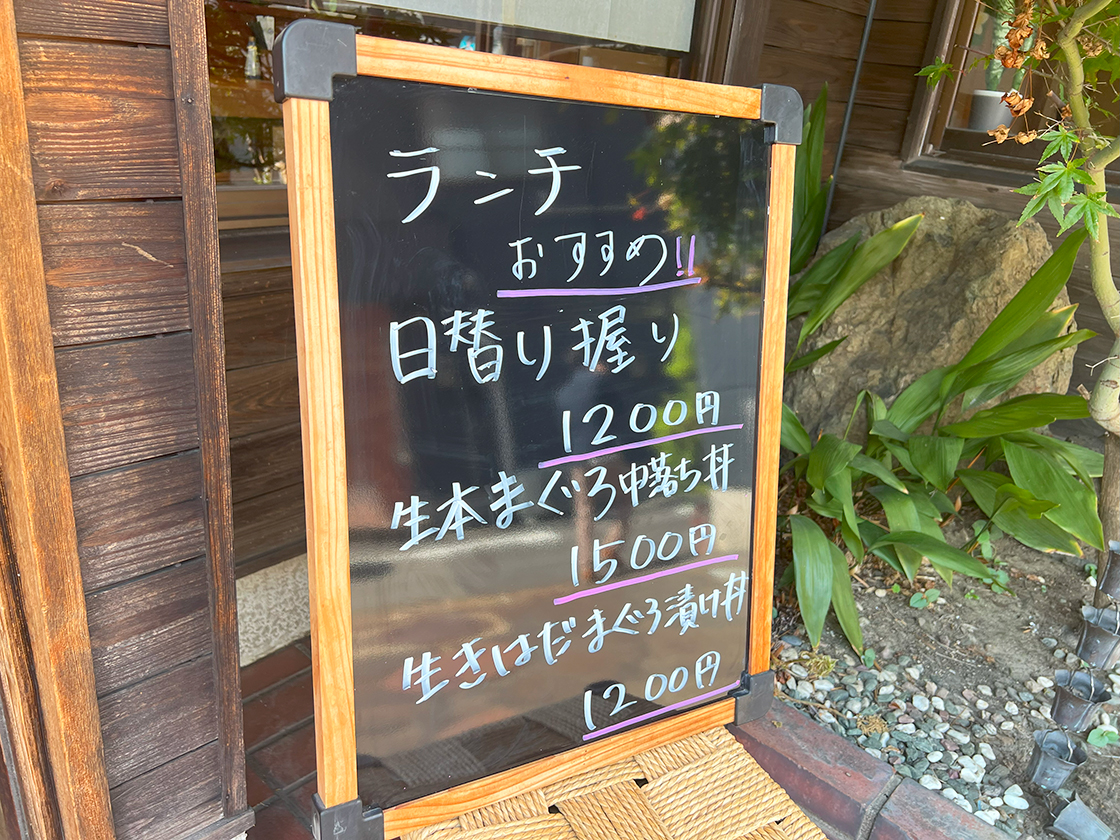 ランチ
おすすめ!!
日替り握り
1200円
生本まぐろ中落ち丼
1500円
生きはだまぐろ漬け丼
1200円